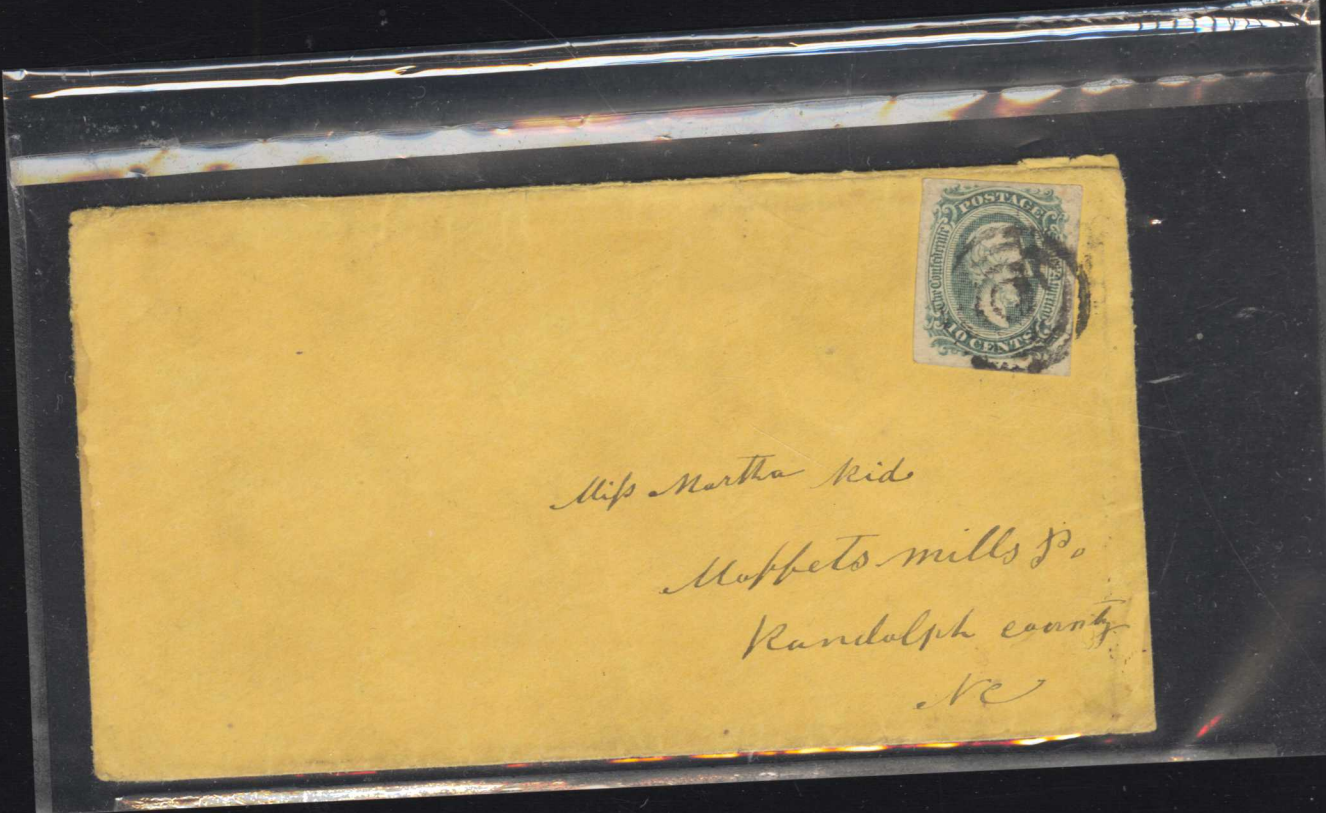 POSTAGE
The Confederate
10 CENTS
Miss Martha Kid
Moffets mills P.o
Randolph county
NC